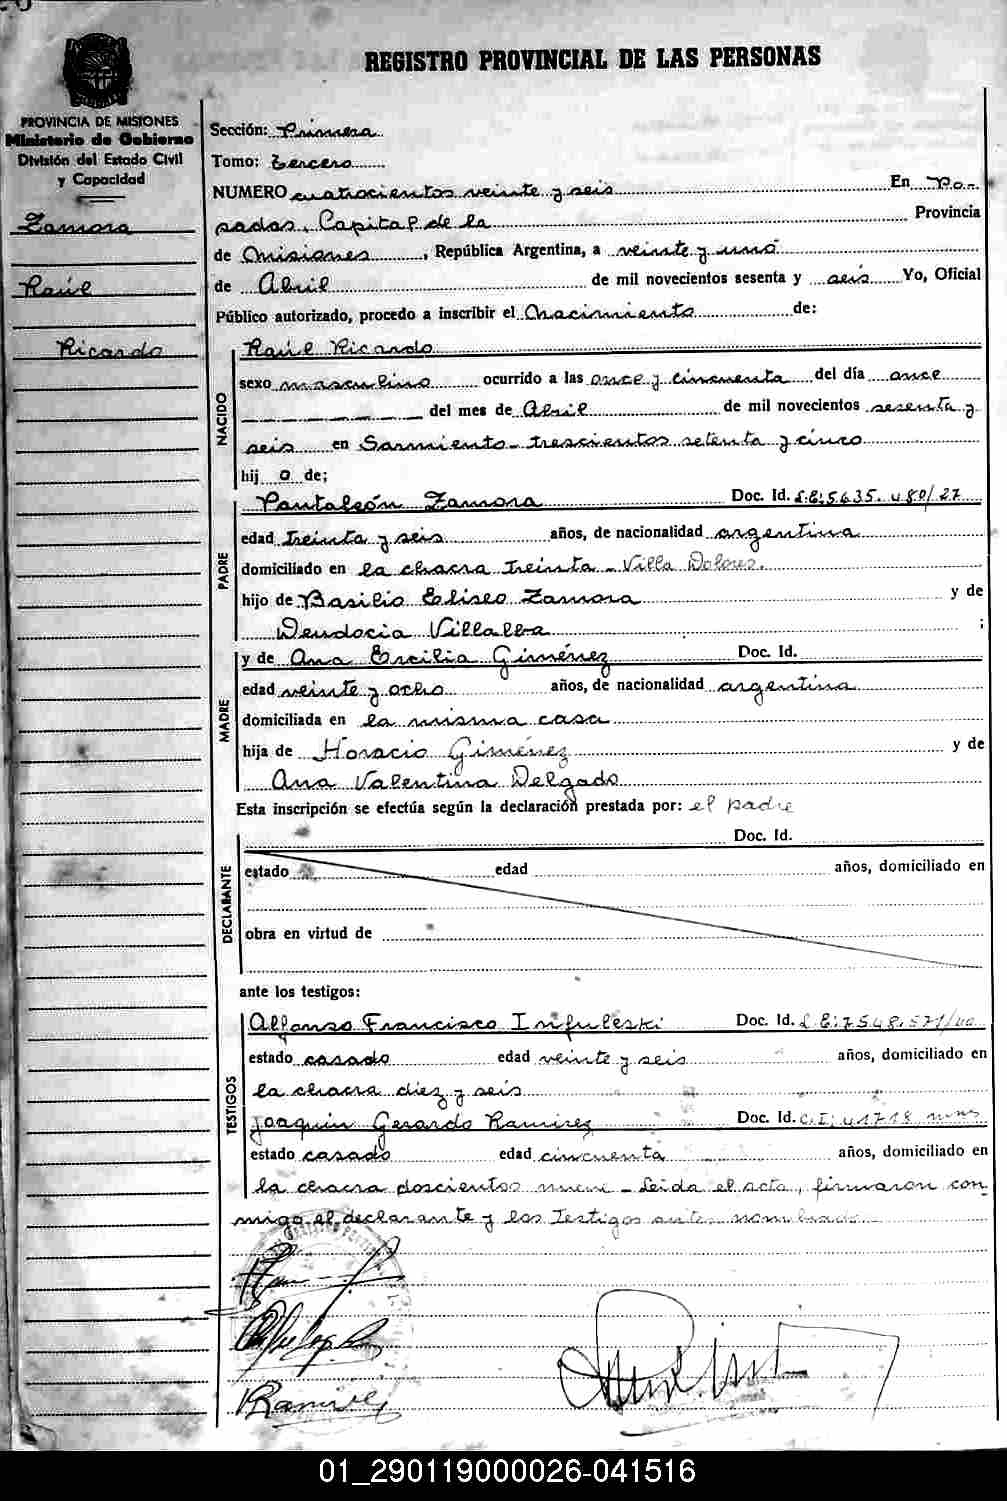 REGISTRO PROVINCIAL DE LAS PERSONAS
PROVINCIA DE MISIONES
Ministerio de Gobierno
División del Estado Civil
y Capacidad
Zamora
Raúl
Ricardo
Sección: Primera
Tomo: tercero
NUMERO cuatrocientos veinte y seis En Po-
sadas, Capital de la Provincia
de Misiones, República Argentina, a veinte y uno
de Abril de mil novecientos sesenta y seis Yo, Oficial
Público autorizado, procedo a inscribir el Nacimiento de:
NACIDO
Raúl Ricardo
sexo masculino ocurrido a las once y cincuenta del día once
del mes de Abril de mil novecientos sesenta y
seis en Sarmiento - trescientos setenta y cinco
hij o de;
PADRE
Pantaleón Zamora Doc. Id. L.E: 5635.480/27
edad treinta y seis años, de nacionalidad argentina
domiciliado en la chacra treinta - Villa Dolores.
hijo de Basilio Eliseo Zamora y de
Deudocia Villalba ;
MADRE
y de Ana Ercilia Giménez Doc. Id.
edad veinte y ocho años, de nacionalidad argentina
domiciliada en la misma casa
hija de Horacio Giménez y de
Ana Valentina Delgado
Esta inscripción se efectúa según la declaración prestada por: el padre
DECLARANTE
Doc. Id.
estado edad años, domiciliado en
obra en virtud de
ante los testigos:
TESTIGOS
Alfonso Francisco Infuleski Doc. Id. L.E: 7548.571/
estado casado edad veinte y seis años, domiciliado en
la chacra diez y seis
Joaquin Gerardo Ramirez Doc. Id. C.I: 41718 mns
estado casado edad cincuenta años, domiciliado en
la chacra doscientos nueve - Leida el acta, firmaron con-
migo el declarante y los testigos antes nombrado
Ramirez
01_290119000026-041516